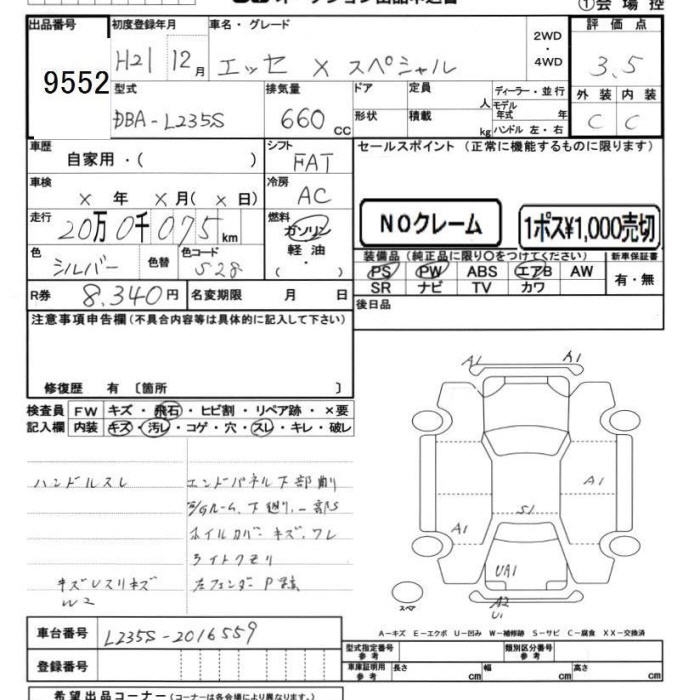 ①会場控
出品番号
9552
初度登録年月
H21 12月
車名・グレード
エッセ X スペシャル
2WD
・
4WD
評価点
3.5
型式
DBA-L235S
排気量
660 cc
ドア
形状
定員 人
積載 kg
ディーラー・並行
モデル年式 年
ハンドル 左・右
外装 内装
C C
車歴
自家用・( )
シフト
FAT
セールスポイント(正常に機能するものに限ります)
車検
× 年 × 月( × 日)
冷房
AC
走行
20万0千075km
燃料
ガソリン
軽油
( )
NOクレーム
1ポス¥1,000売切
色
シルバー
色替
色コード
S28
装備品(純正品に限り○をつけてください)
新車保証書
PS PW ABS エアB AW
SR ナビ TV カワ
有・無
R券 8,340円
名変期限 月 日
後日品
注意事項申告欄(不具合内容等は具体的に記入して下さい)
修復歴 有〔箇所 〕
検査員記入欄
FW キズ・飛石・ヒビ割・リペア跡・×要
内装 キズ・汚レ・コゲ・穴・スレ・キレ・破レ
ハンドルスレ
エンドパネル下部削
E/Gルーム、下廻り、一部S
ホイルカバーキズ、ワレ
ライトクモリ
キズUスリキズ
W2
左フェンダーP
A1
A1
A1
A1
S1
UA1
A2
U1
スペア
A-キズ E-エクボ U-凹み W-補修跡 S-サビ C-腐食 XX-交換済
車台番号
L235S-2016559
登録番号
型式指定番号 参考
類別区分番号 参考
車庫証明用 参考
長さ cm
幅 cm
高さ cm
希望出品コーナー(コーナーは各会場により異なります。)